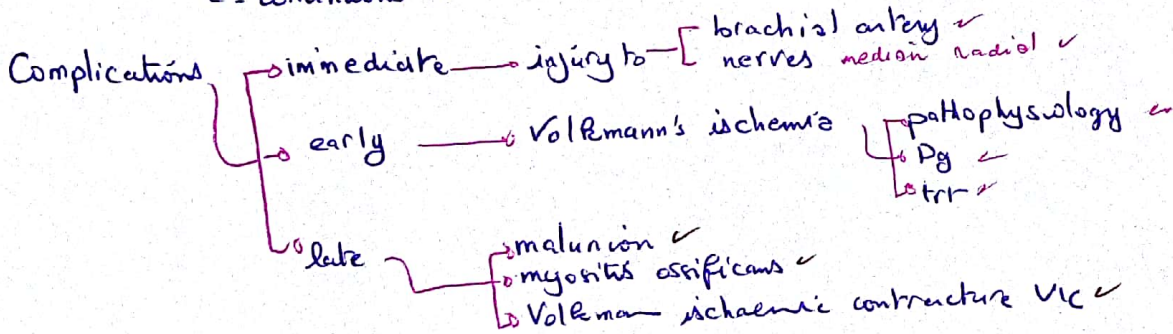 Complications
immediate injury to brachial artery ✓
nerves median radial ✓
early Volkmann's ischemia pathophysiology ✓
Dg ✓
trr ✓
late malunion ✓
myositis ossificans ✓
Volkman ischaemic contracture VIC ✓